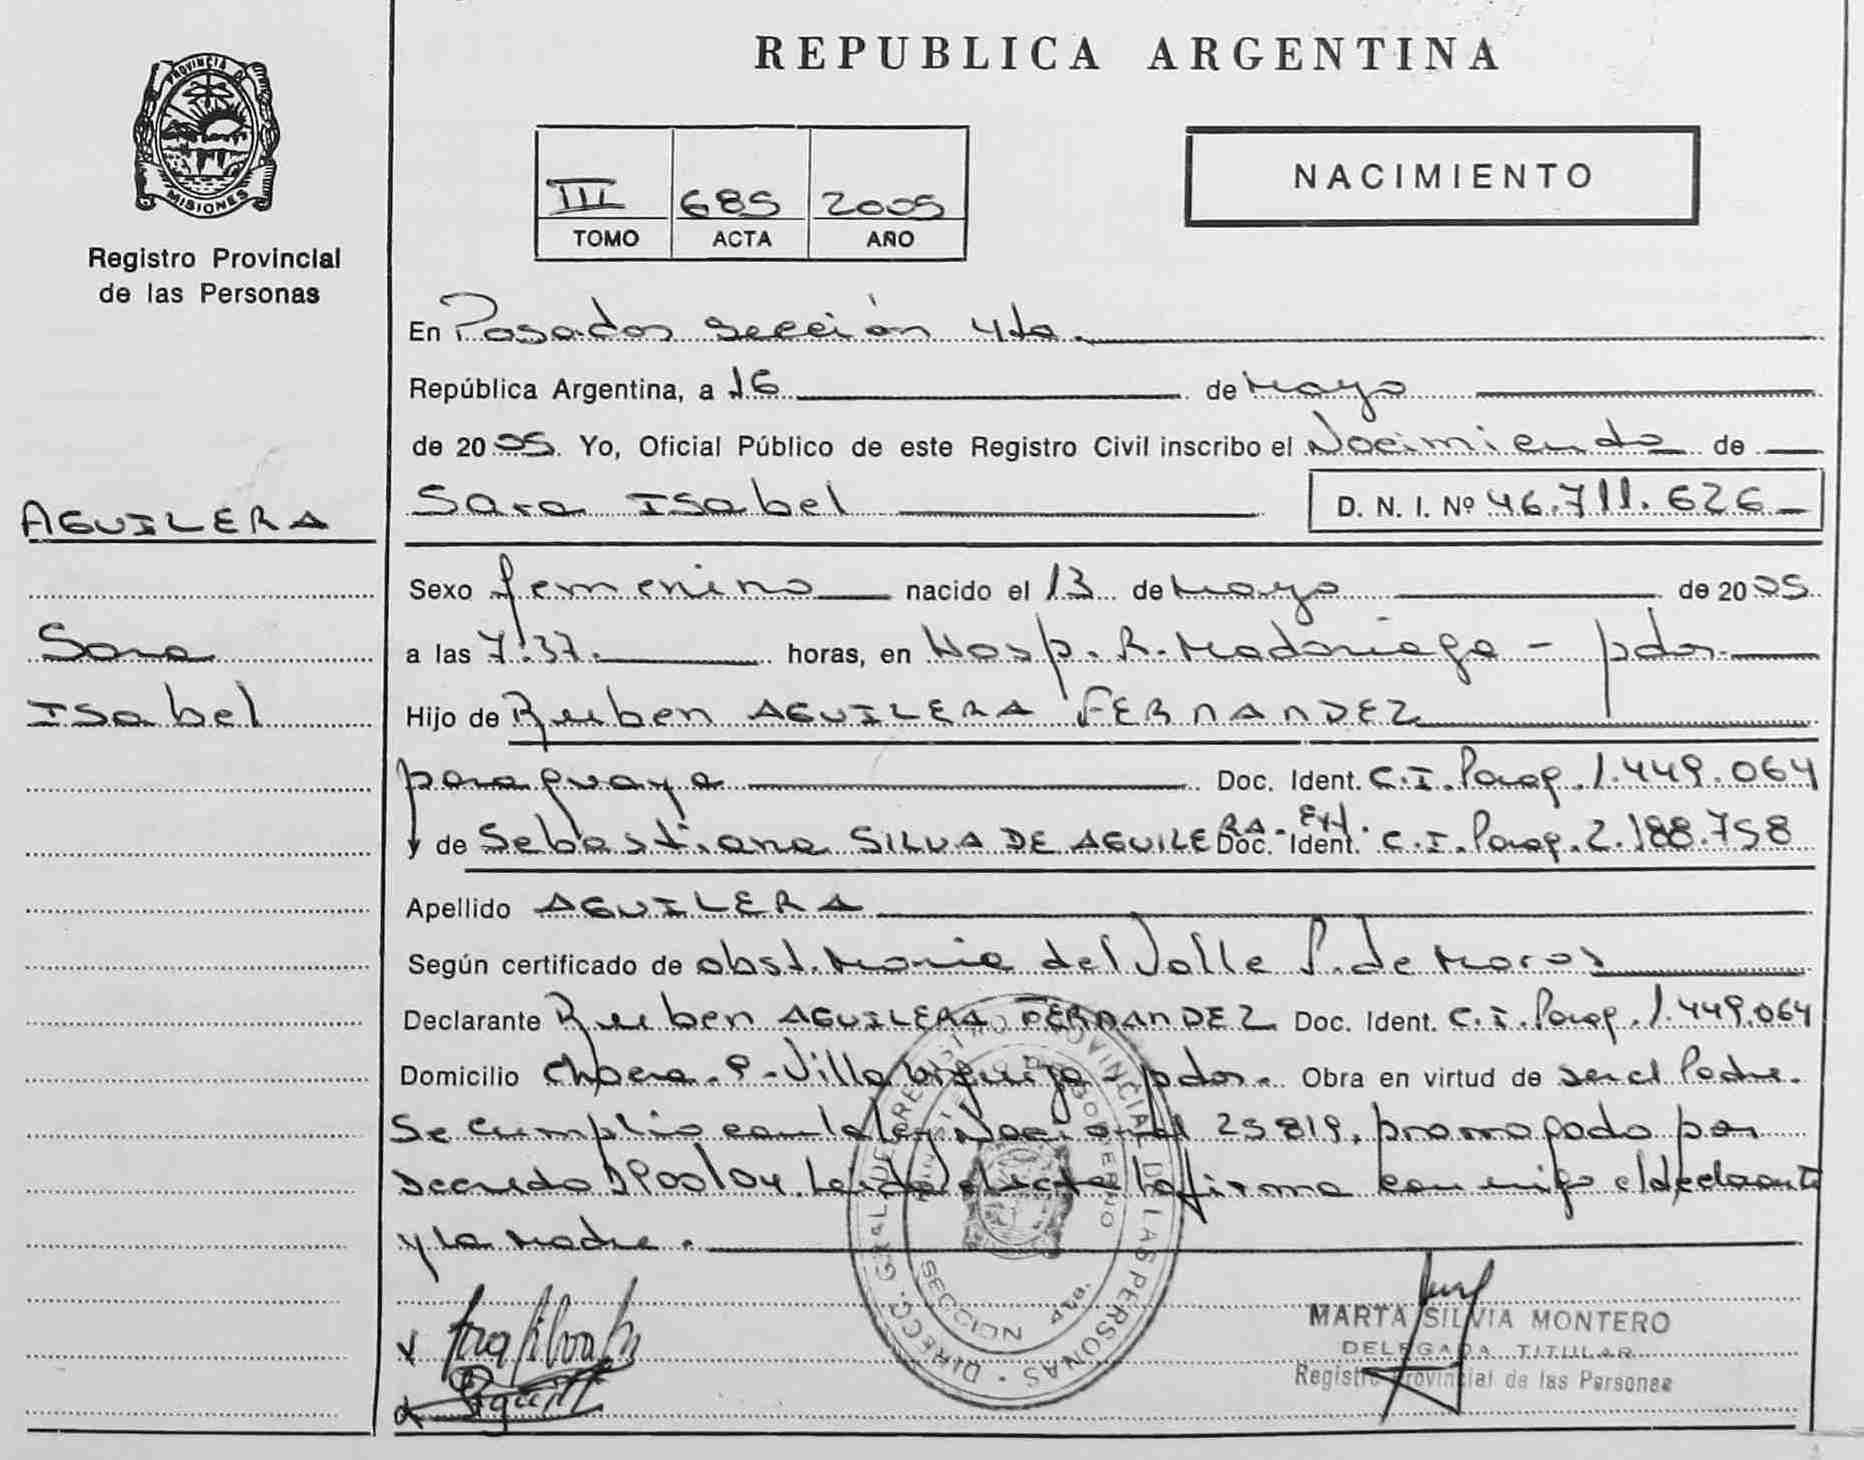 REPUBLICA ARGENTINA
PROVINCIA DE
MISIONES
Registro Provincial
de las Personas
III 685 2005
TOMO ACTA AÑO
NACIMIENTO
En Posadas sección 4ta.
República Argentina, a 16 de Mayo
de 2005. Yo, Oficial Público de este Registro Civil inscribo el Nacimiento de
Sara Isabel D. N. I. Nº 46.711.626
AGUILERA
Sara
Isabel
Sexo femenino nacido el 13 de Mayo de 2005.
a las 7:37. horas, en Hosp. R. Madariaga - pdas.
Hijo de Ruben AGUILERA FERNANDEZ
paraguaya Doc. Ident. C.I. Parag. 1.449.064
y de Sebastiana SILVA DE AGUILERA - Ext. Doc. Ident. C.I. Parag. 2.188.758
Apellido AGUILERA
Según certificado de obst. Maria del Valle P. de Maros
Declarante Ruben AGUILERA FERNANDEZ Doc. Ident. C.I. Parag. 1.449.064
Domicilio Chacra. 9 - Villa Urquiza - pdas. Obra en virtud de ser el Padre.
Se cumplio con la ley Nacional 25819, promogado por
Decreto 1900/04. Leida el acta la firma conmigo el declarante
y la madre.
DIRECC. GRAL DE REGISTRO PROVINCIAL DE LAS PERSONAS
MINIST. DE GOBIERNO
SECCION 4ta.
MARTA SILVIA MONTERO
DELEGADA TITULAR
Registro Provincial de las Personas